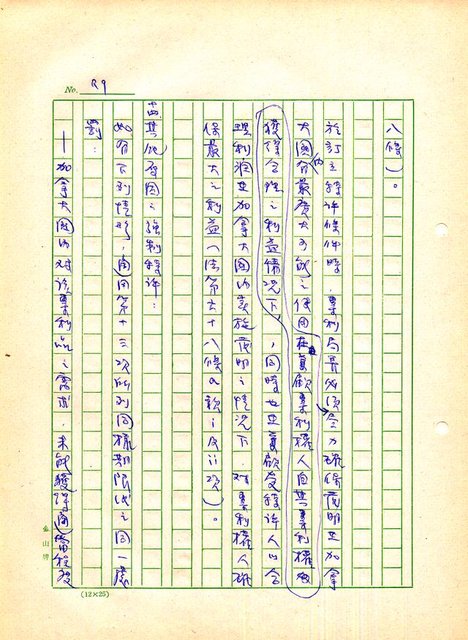 No. 89
八條)。
於訂立特許條件時,專利局長必須盡力確保發明在加拿
大國內最廣大可能之使用在兼顧專利權人自其專利權
獲得合理之利益情況下,同時也在兼顧受特許人以合
理利潤在加拿大國內實施發明之情況下,對專利權人確
保最大之利益(法第六十八條(a)款i及ii項)。
其他原因之強制特許:
如有下列情形,自同第十三項所列同樣期限後之同一處
罰:
—加拿大國內對該專利品之需求,未能獲得適當程度
(12×25)
金山牌